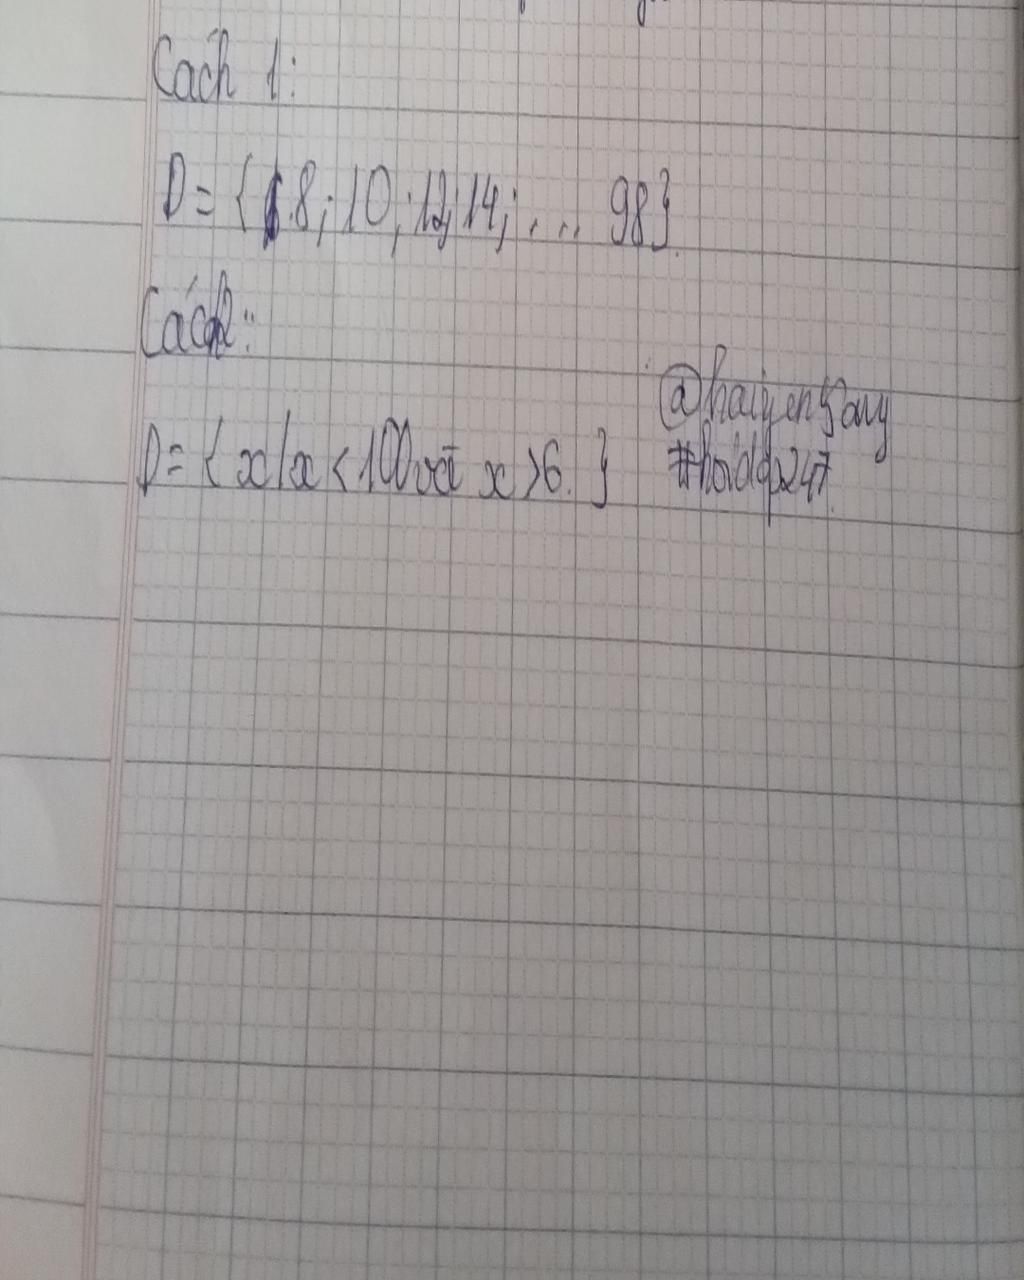 Cách 1:
D = { 8; 10; 12; 14; ... 98}.
Cách 2:
D = { x / x < 100 và x > 6. }
@haiyen5any
#hoidap247.